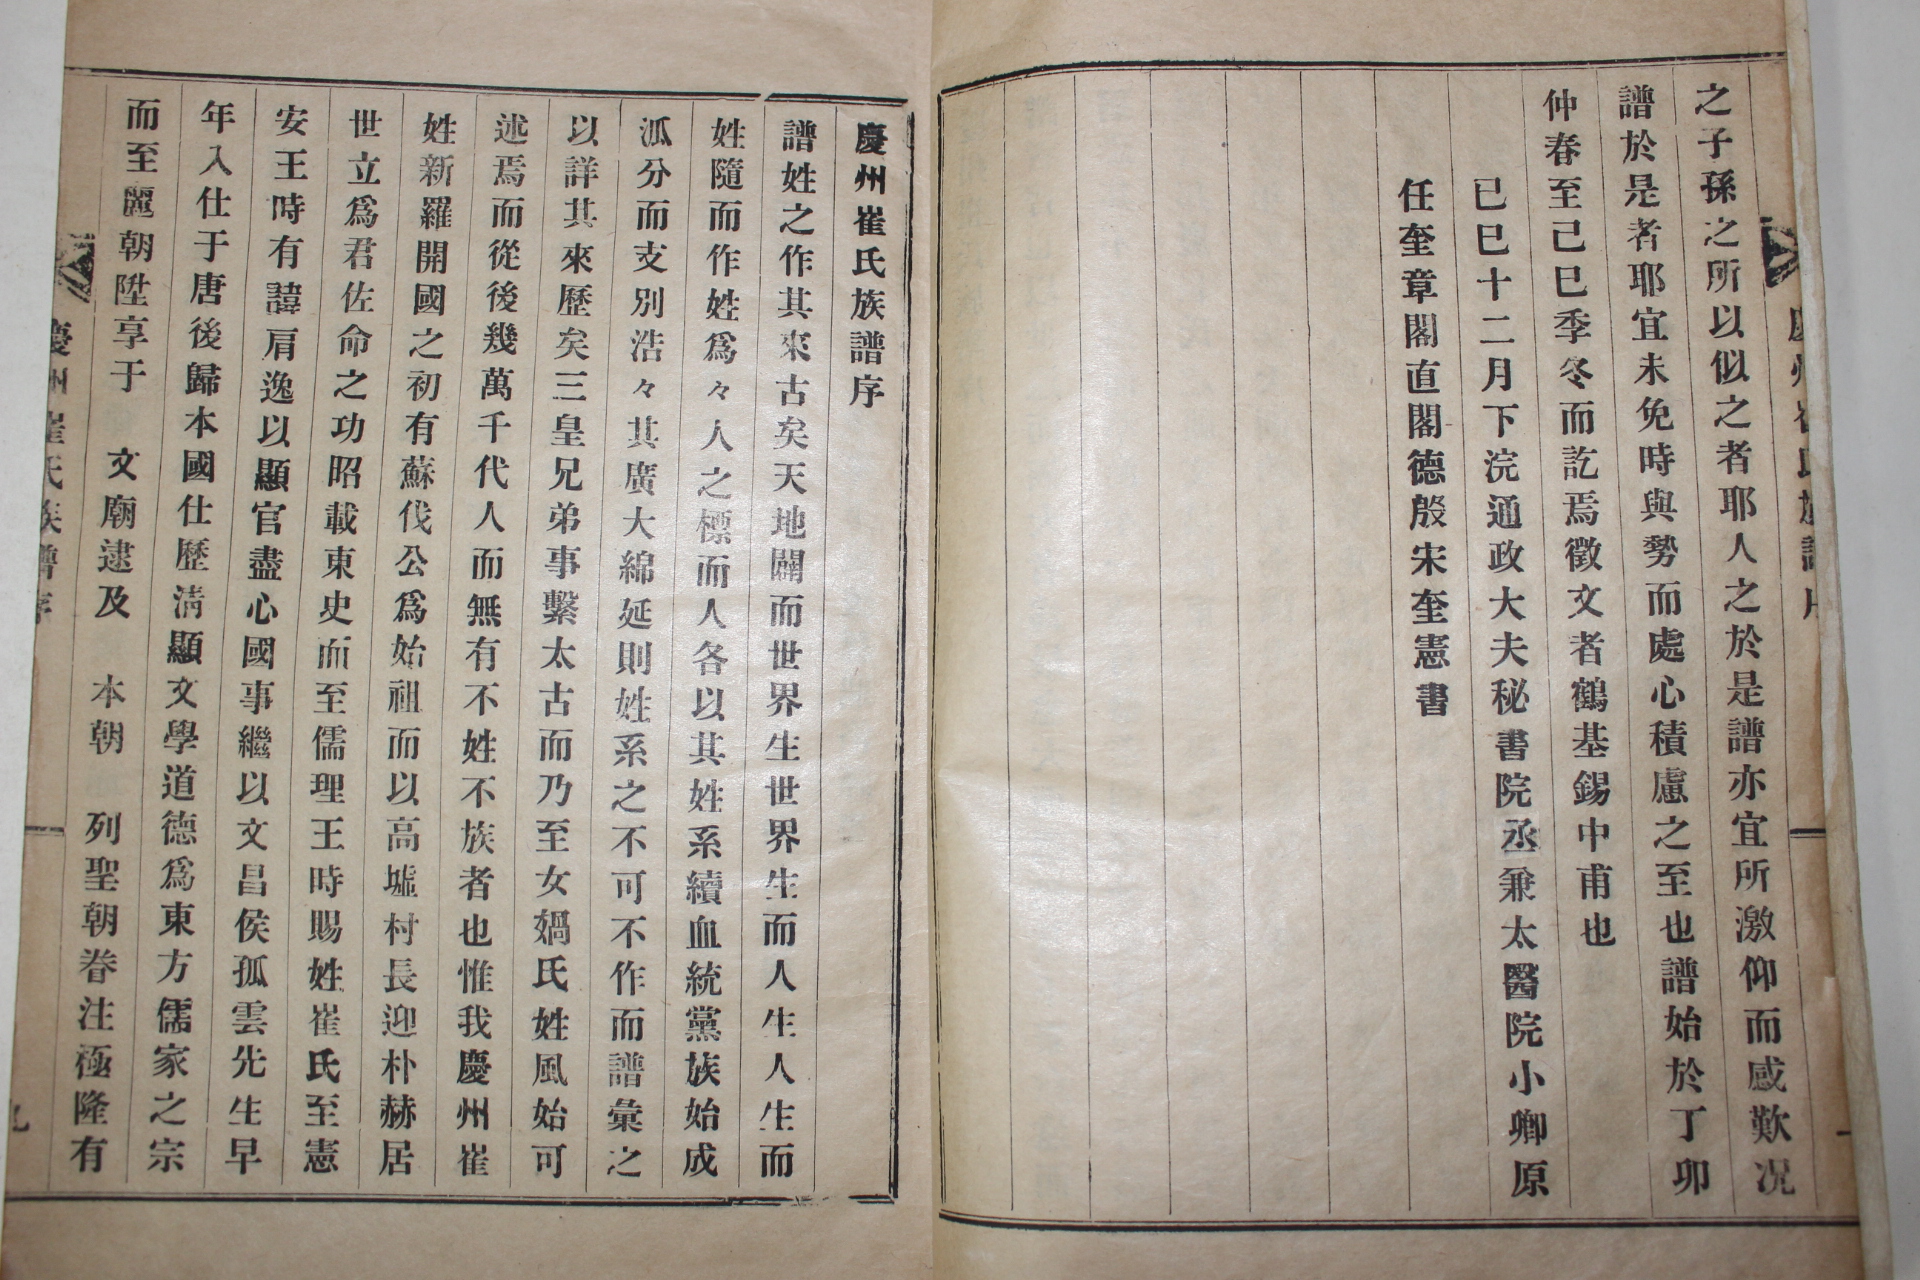 之子孫之所以似之者耶人之於是譜亦宜所激仰而感歎况
譜於是者耶宜未免時與勢而處心積慮之至也譜始於丁卯
仲春至己巳季冬而訖焉徵文者鶴基錫中甫也
己巳十二月下浣通政大夫秘書院丞兼太醫院小卿原
任奎章閣直閣德殷宋奎憲書
慶州崔氏族譜序
譜姓之作其來古矣天地闢而世界生世界生而人生人生而
姓隨而作姓爲々人之標而人各以其姓系續血統黨族始成
泒分而支別浩々其廣大綿延則姓系之不可不作而譜彙之
以詳其來歷矣三皇兄弟事繫太古而乃至女媧氏姓風始可
述焉而從後幾萬千代人而無有不姓不族者也惟我慶州崔
姓新羅開國之初有蘇伐公爲始祖而以高墟村長迎朴赫居
世立爲君佐命之功昭載東史而至儒理王時賜姓崔氏至憲
安王時有諱肩逸以顯官盡心國事繼以文昌侯孤雲先生早
年入仕于唐後歸本國仕歷淸顯文學道德爲東方儒家之宗
而至麗朝陞享于 文廟逮及 本朝 列聖朝眷注極隆有
慶州崔氏族譜序